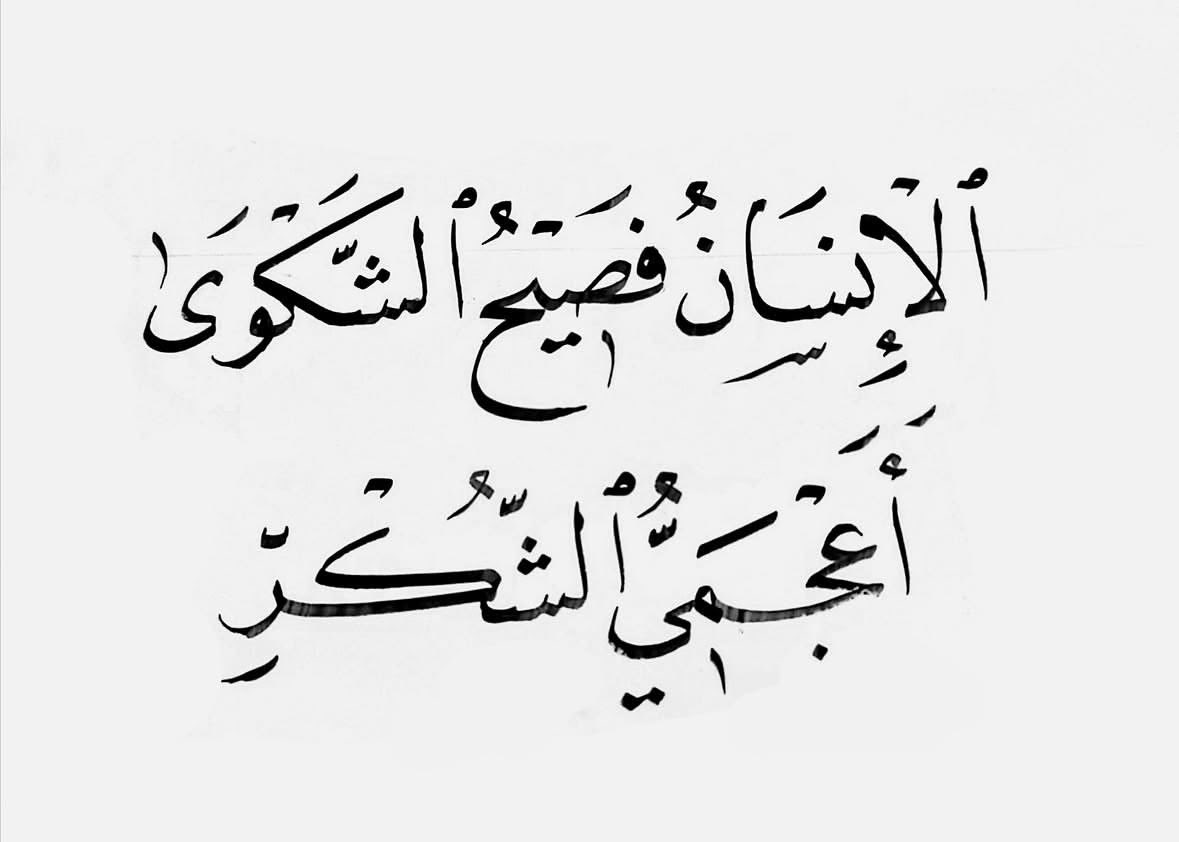 ٱلْإِنْسَانُ فَصِيْحُ ٱلشَّكْوَىٰ
أَعْجَمِيُّ ٱلشُّكْرِ